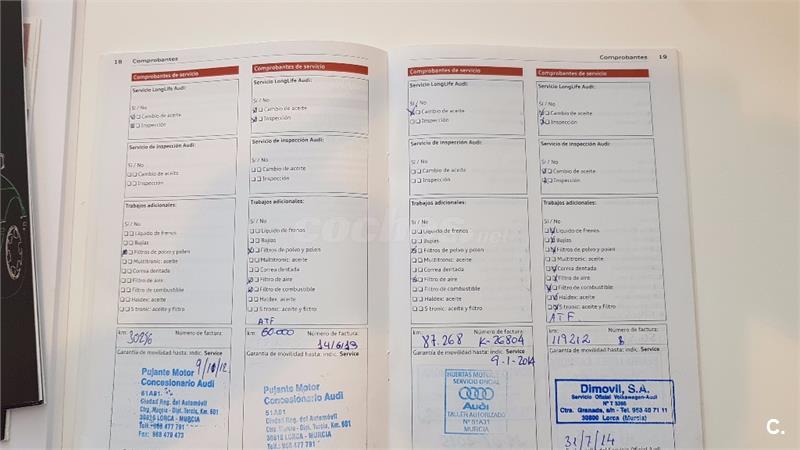 18 Comprobantes
Comprobantes de servicio
Servicio LongLife Audi:
Sí / No
Cambio de aceite
Inspección
Servicio de inspección Audi:
Sí / No
Cambio de aceite
Inspección
Trabajos adicionales:
Sí / No
Líquido de frenos
Bujías
Filtros de polvo y polen
Multitronic: aceite
Correa dentada
Filtro de aire
Filtro de combustible
Haldex: aceite
S tronic: aceite y filtro
km: 30296 Número de factura:
9/10/12
Garantía de movilidad hasta: indic. Service
Pujante Motor
Concesionario Audi
61A81
Ciudad Reg. del Automóvil
Ctra. Murcia - Dipt. Tercia, Km. 601
30815 LORCA - MURCIA
Telf.: 968 477 791
Fax: 968 479 473
Comprobantes de servicio
Servicio LongLife Audi:
Sí / No
Cambio de aceite
Inspección
Servicio de inspección Audi:
Sí / No
Cambio de aceite
Inspección
Trabajos adicionales:
Sí / No
Líquido de frenos
Bujías
Filtros de polvo y polen
Multitronic: aceite
Correa dentada
Filtro de aire
Filtro de combustible
Haldex: aceite
S tronic: aceite y filtro
ATF
km: 60.000 Número de factura:
14/6/13
Garantía de movilidad hasta: indic. Service
Pujante Motor
Concesionario Audi
Ciudad Reg. del Automóvil
30815 LORCA - MURCIA
Comprobantes 19
Comprobantes de servicio
Servicio LongLife Audi:
Sí / No
Cambio de aceite
Inspección
Servicio de inspección Audi:
Sí / No
Cambio de aceite
Inspección
Trabajos adicionales:
Sí / No
Líquido de frenos
Bujías
Filtros de polvo y polen
Multitronic: aceite
Correa dentada
Filtro de aire
Filtro de combustible
Haldex: aceite
S tronic: aceite y filtro
km: Número de factura:
87.268 K-26804
Garantía de movilidad hasta: indic. Service
9-1-2014
HUERTAS MOTOR
SERVICIO OFICIAL
Audi
TALLER AUTORIZADO
Nº 61A31
MURCIA
Comprobantes de servicio
Servicio LongLife Audi:
Sí / No
Cambio de aceite
Inspección
Servicio de inspección Audi:
Sí / No
Cambio de aceite
Inspección
Trabajos adicionales:
Sí / No
Líquido de frenos
Bujías
Filtros de polvo y polen
Multitronic: aceite
Correa dentada
Filtro de aire
Filtro de combustible
Haldex: aceite
S tronic: aceite y filtro
ATF
km: Número de factura:
119212
Garantía de movilidad hasta: indic. Service
Dimovil, S.A.
Servicio Oficial Volkswagen-Audi
Ctra. Granada, s/n - Tel. 953 40 71 11
30800 Lorca (Murcia)
31/7/14
del Servicio Oficial Audi
coches.net
C.